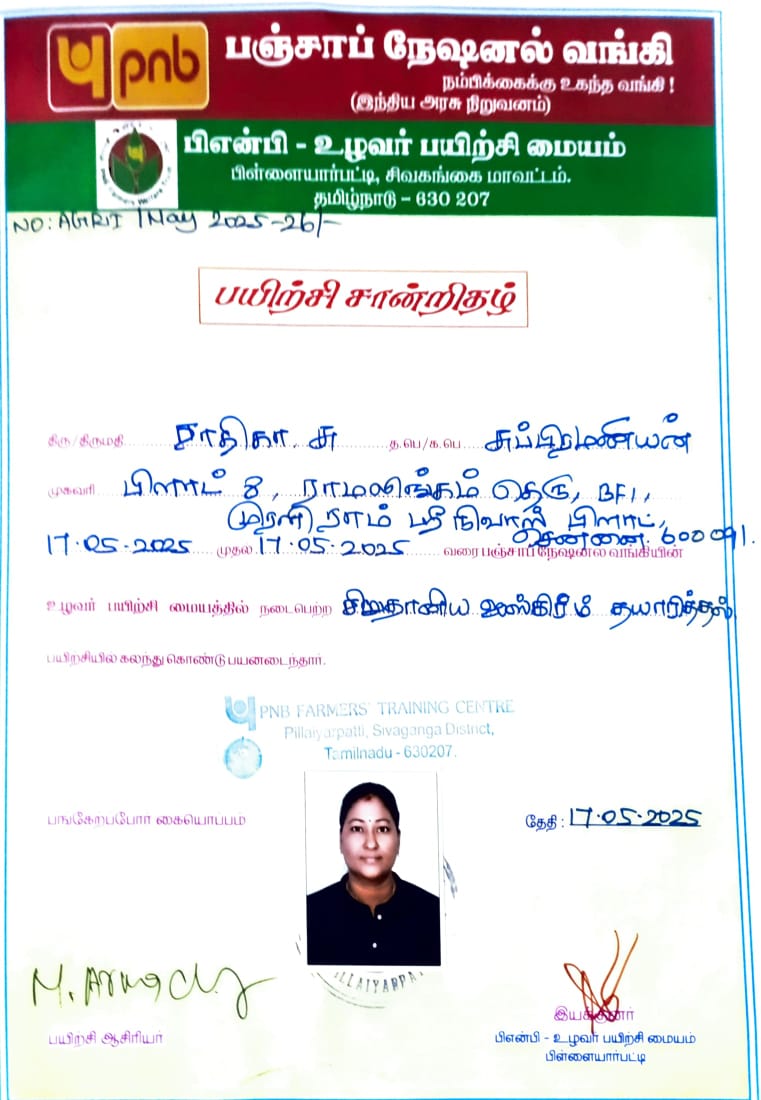 pnb
பஞ்சாப் நேஷனல் வங்கி
நம்பிக்கைக்கு உகந்த வங்கி !
(இந்திய அரசு நிறுவனம்)
பிஎன்பி - உழவர் பயிற்சி மையம்
பிள்ளையார்பட்டி, சிவகங்கை மாவட்டம்.
தமிழ்நாடு - 630 207
NO: AGRI / May 2025-26/-
பயிற்சி சான்றிதழ்
திரு/திருமதி ராதிகா. சு த.பெ/க.பெ சுப்பிரமணியன்
முகவரி பிளாட் 8, ராமலிங்கம் தெரு, BF1,
ஸ்ரீ நிவாஸ் பிளாட், சென்னை. 600 091.
17.05.2025 முதல் 17.05.2025 வரை பஞ்சாப் நேஷனல் வங்கியின்
உழவர் பயிற்சி மையத்தில் நடைபெற்ற சிறுதானிய ஐஸ்கிரீம் தயாரித்தல்
பயிற்சியில் கலந்து கொண்டு பயனடைந்தார்.
PNB FARMERS' TRAINING CENTRE
Pillaiyarpatti, Sivaganga District,
Tamilnadu - 630207.
பங்கேற்பபோர் கையொப்பம்
தேதி : 17.05.2025
பயிற்சி ஆசிரியர்
இயக்குனர்
பிஎன்பி - உழவர் பயிற்சி மையம்
பிள்ளையார்பட்டி